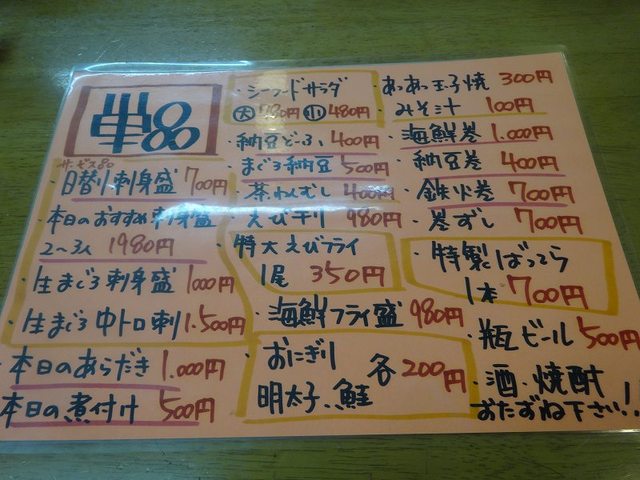 単品
サービス品
・日替り刺身盛 700円
・本日のおすすめ刺身盛
2〜3人 1980円
・生まぐろ刺身盛 1000円
・生まぐろ中トロ刺 1.500円
・本日のあらだき 1.000円
本日の煮付け 500円
・シーフードサラダ
大 780円 小 480円
納豆どーふ 400円
まぐろ納豆 500円
・茶わんむし 400円
・えびチリ 980円
・特大えびフライ
1尾 350円
・海鮮フライ盛 980円
・おにぎり 各200円
明太子、鮭
・あつあつ玉子焼 300円
みそ汁 100円
・海鮮巻 1.000円
・納豆巻 400円
・鉄火巻 700円
・巻ずし 700円
・特製ばってら
1本 700円
・瓶ビール 500円
・酒・焼酎
おたずね下さい!!